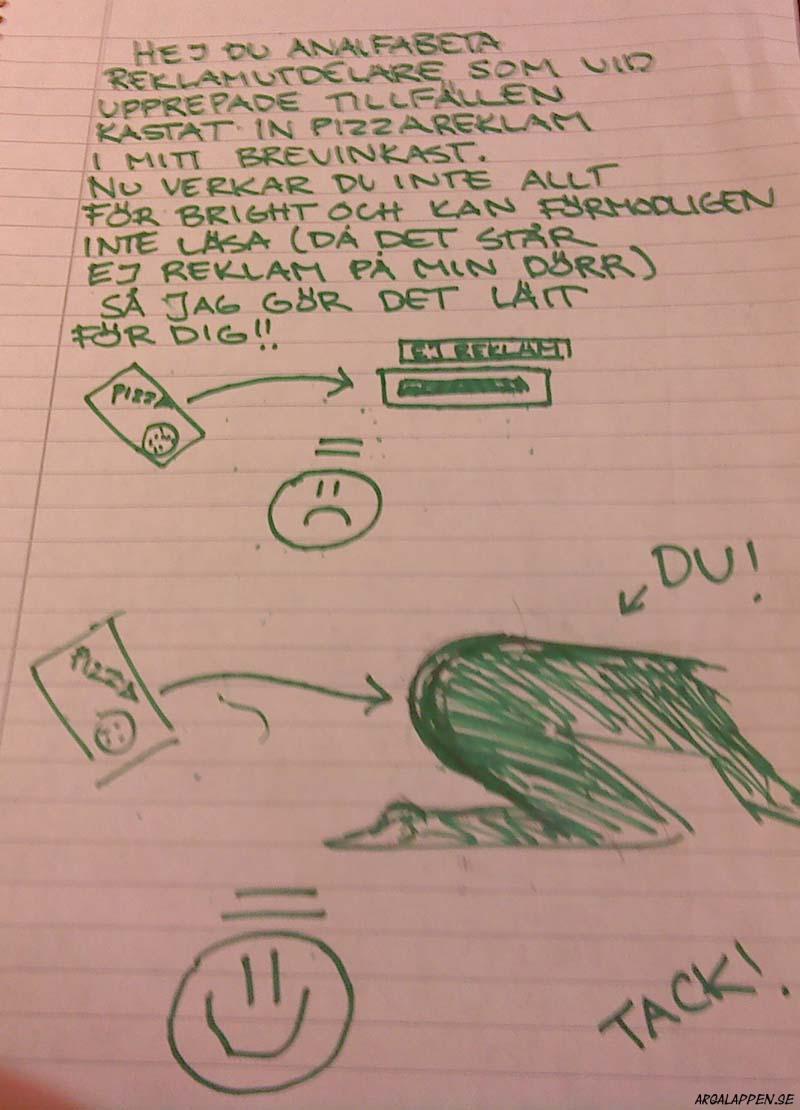 HEJ DU ANALFABETA
REKLAMUTDELARE SOM VID
UPPREPADE TILLFÄLLEN
KASTAT IN PIZZAREKLAM
I MITT BREVINKAST.
NU VERKAR DU INTE ALLT
FÖR BRIGHT OCH KAN FÖRMODLIGEN
INTE LÄSA (DÅ DET STÅR
EJ REKLAM PÅ MIN DÖRR)
SÅ JAG GÖR DET LÄTT
FÖR DIG!!
EJ REKLAM
PIZZA
=
DU!
PIZZA
=
TACK!
ARGALAPPEN.SE